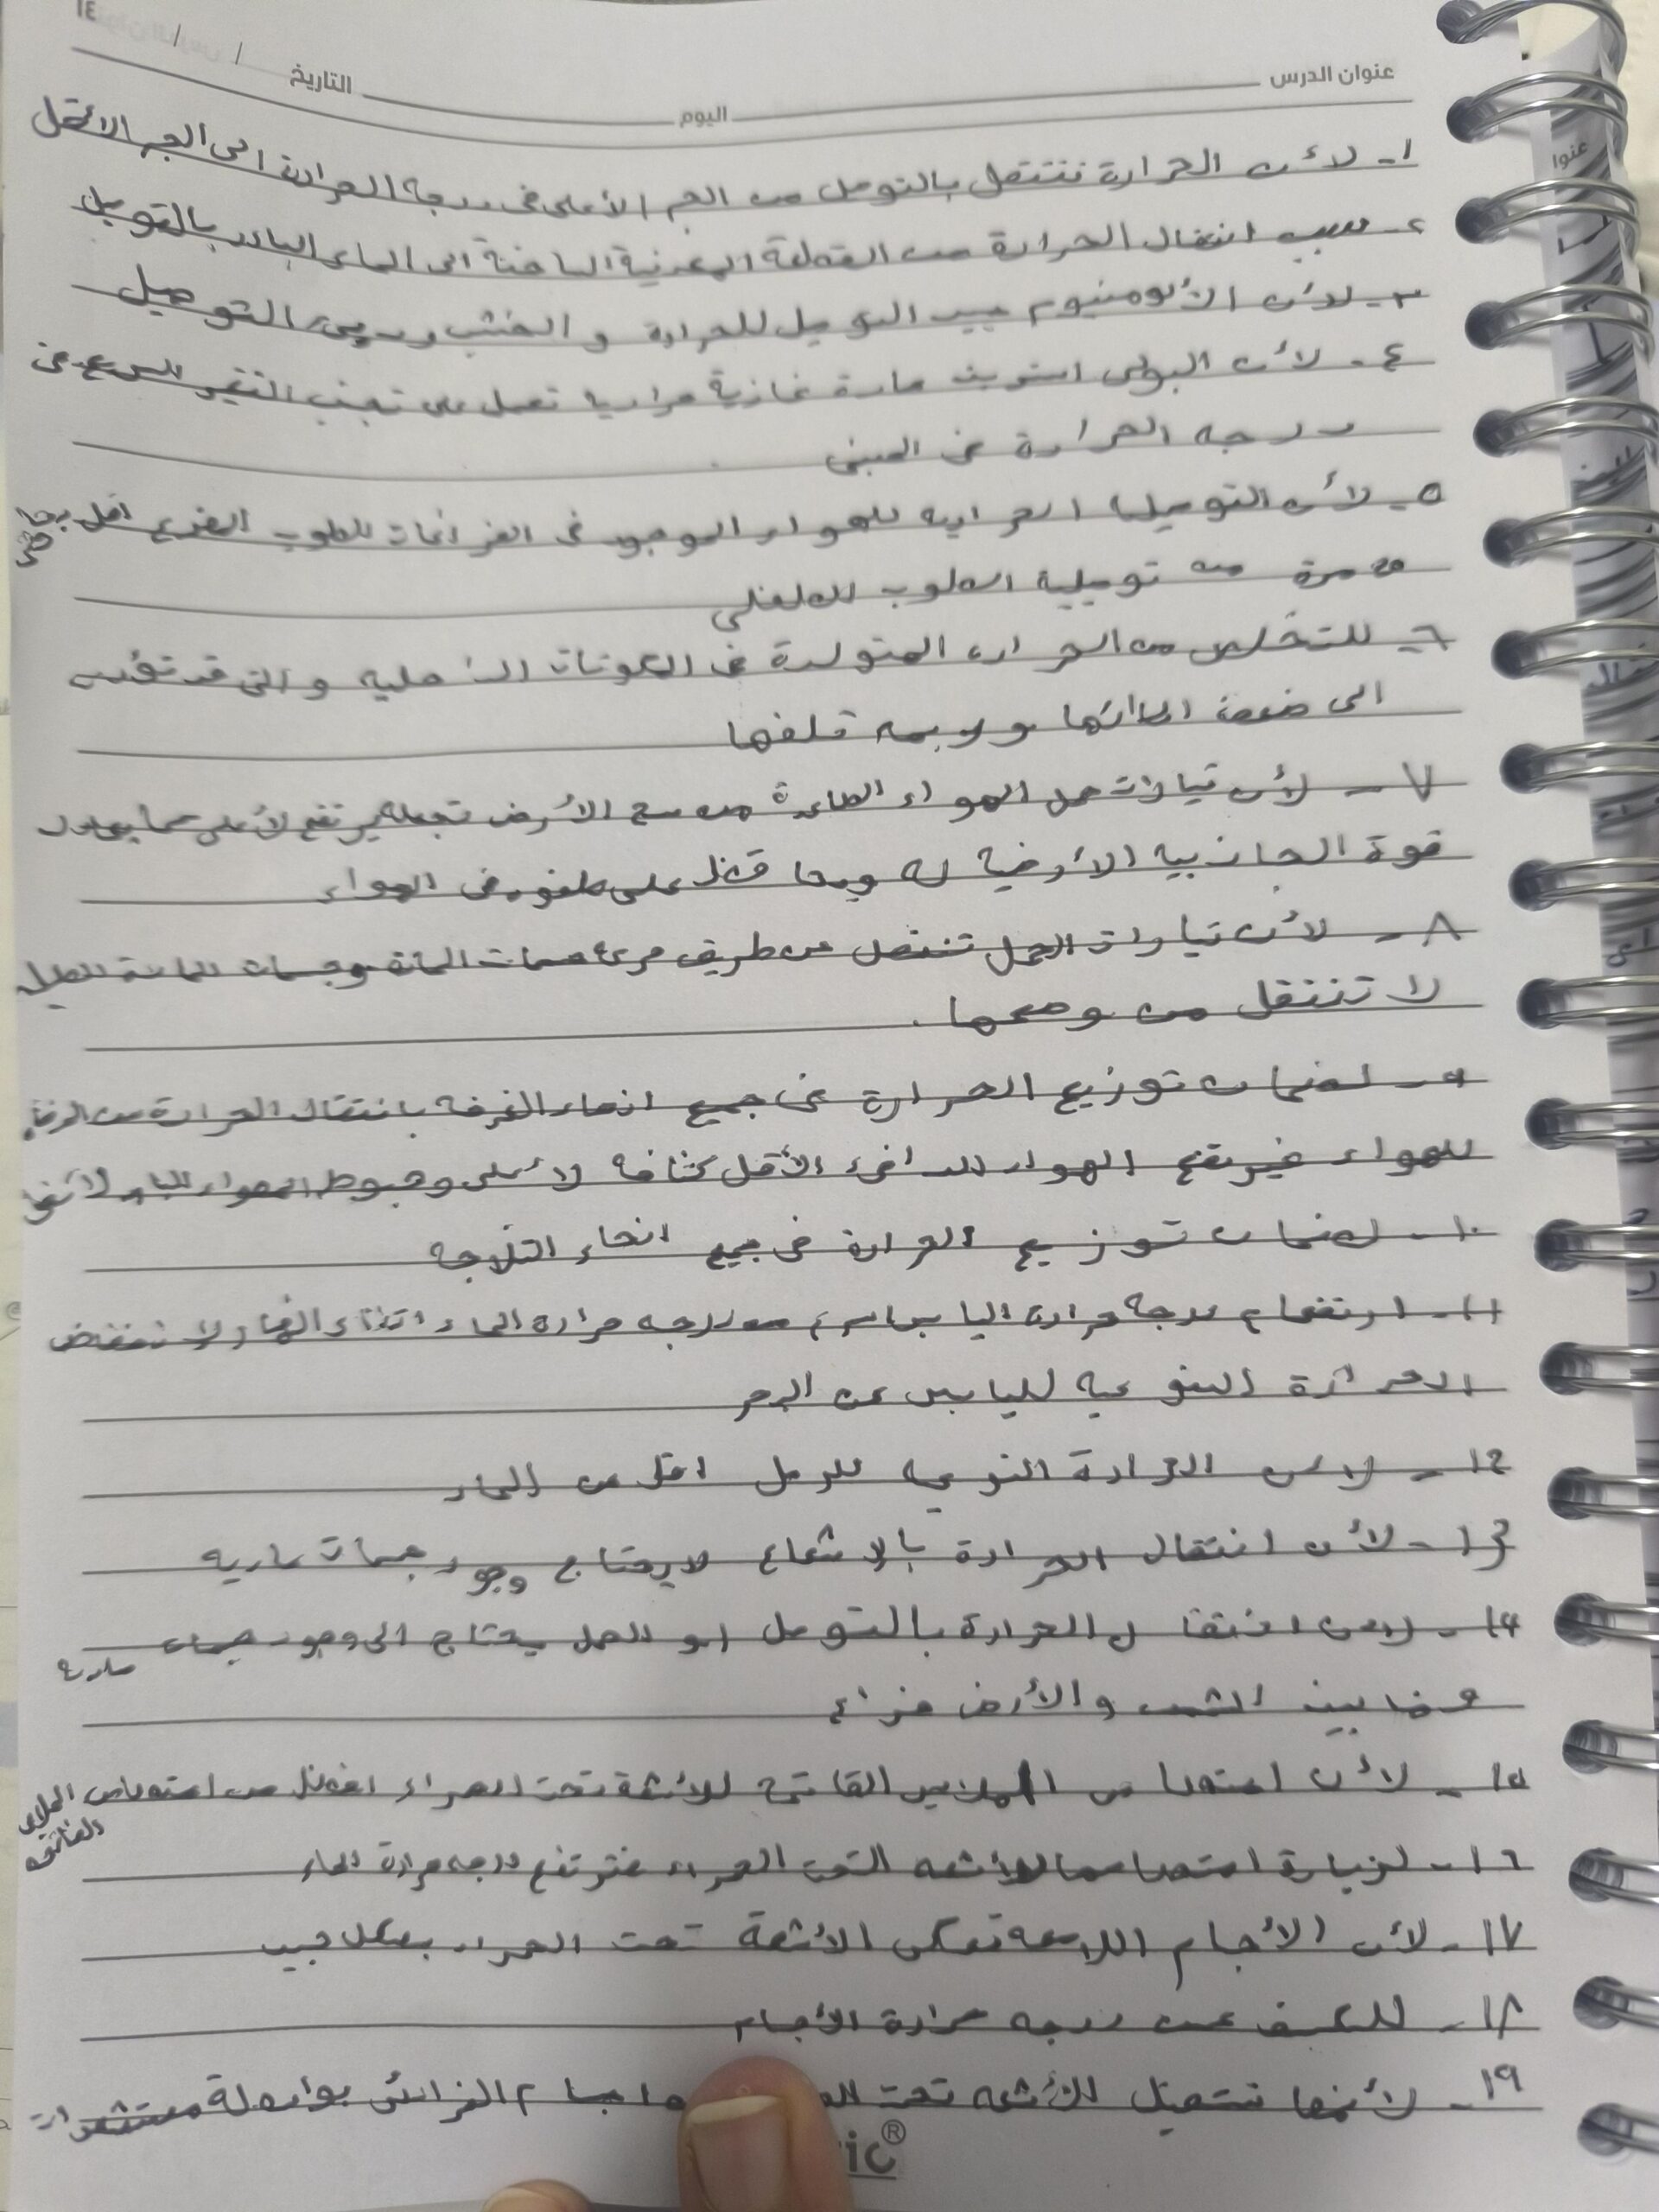 عنوان الدرس اليوم التاريخ / /
١- لأن الحرارة تنتقل بالتوصل من الجسم الأعلى في درجة الحرارة الى الجسم الأقل
٢- بسبب انتقال الحرارة من القطعة المعدنية الساخنة الى الماء البارد بالتوصيل
٣- لأن الألومنيوم جيد التوصيل للحرارة و الخشب ردئ التوصيل
٤- لأن البولى استرين مادة عازلة حرارية تعمل على تجنب التغير السريع في
درجه الحرارة في المبنى
٥- لأن التوصيلية الحراريه للهواء الموجود في الفراغات للطوب المفرغ اقل
مرة من توصيلية الطوب
٦- للتخلص من الحرارة المتولدة في المكونات الداخليه والتى قد تؤدى
الى ضعف ادائها وربما تلفها
٧- لأن تيارات حمل الهواء الصاعدة من سطح الأرض تجعله يرتفع لأعلى مما يعادل
قوة الجاذبيه الأرضية له على في الهواء
٨- لأن تيارات الحمل تنتقل عن طريق حركة جسمات المادة وجسمات المادة الصلبة
لا تنتقل من وضعها.
٩- لضمان توزيع الحرارة في جميع انحاء الغرفة بانتقال الحرارة من
للهواء فيرتفع الهواء الدافئ الأقل كثافة لأعلى وهبوط الهواء البارد لأسفل
١٠- لضمان توزيع الحرارة في جميع انحاء الثلاجه
١١- ارتفاع درجة حرارة اليابس اسرع من درجه حرارة الماء اثناء النهار لانخفاض
الحرارة النوعيه لليابس عن البحر
١٢- لأن الحرارة النوعيه للرمل اقل من الماء
١٣- لأن انتقال الحرارة بالإشعاع لا يحتاج وجود جسمات ماديه
١٤- لأن انتقال الحرارة بالتوصل او الحمل يحتاج الى وجود جسمات ماديه
وما بين الشمس والأرض فراغ
١٥- لأن امتصاص الملابس القاتمة للأشعة تحت الحمراء افضل من امتصاص الملابس الفاتحه
١٦- لزيادة امتصاصها للأشعه التحت الحمراء فترتفع درجه حرارة الماء
١٧- لأن الأجسام اللامعه تعكس الأشعة تحت الحمراء بشكل جيد
١٨- للكشف عن درجه حرارة الأجسام
١٩- لأنها تستقبل الأشعه تحت اجسام الفرائس بواسطة مستشعرات
ric®